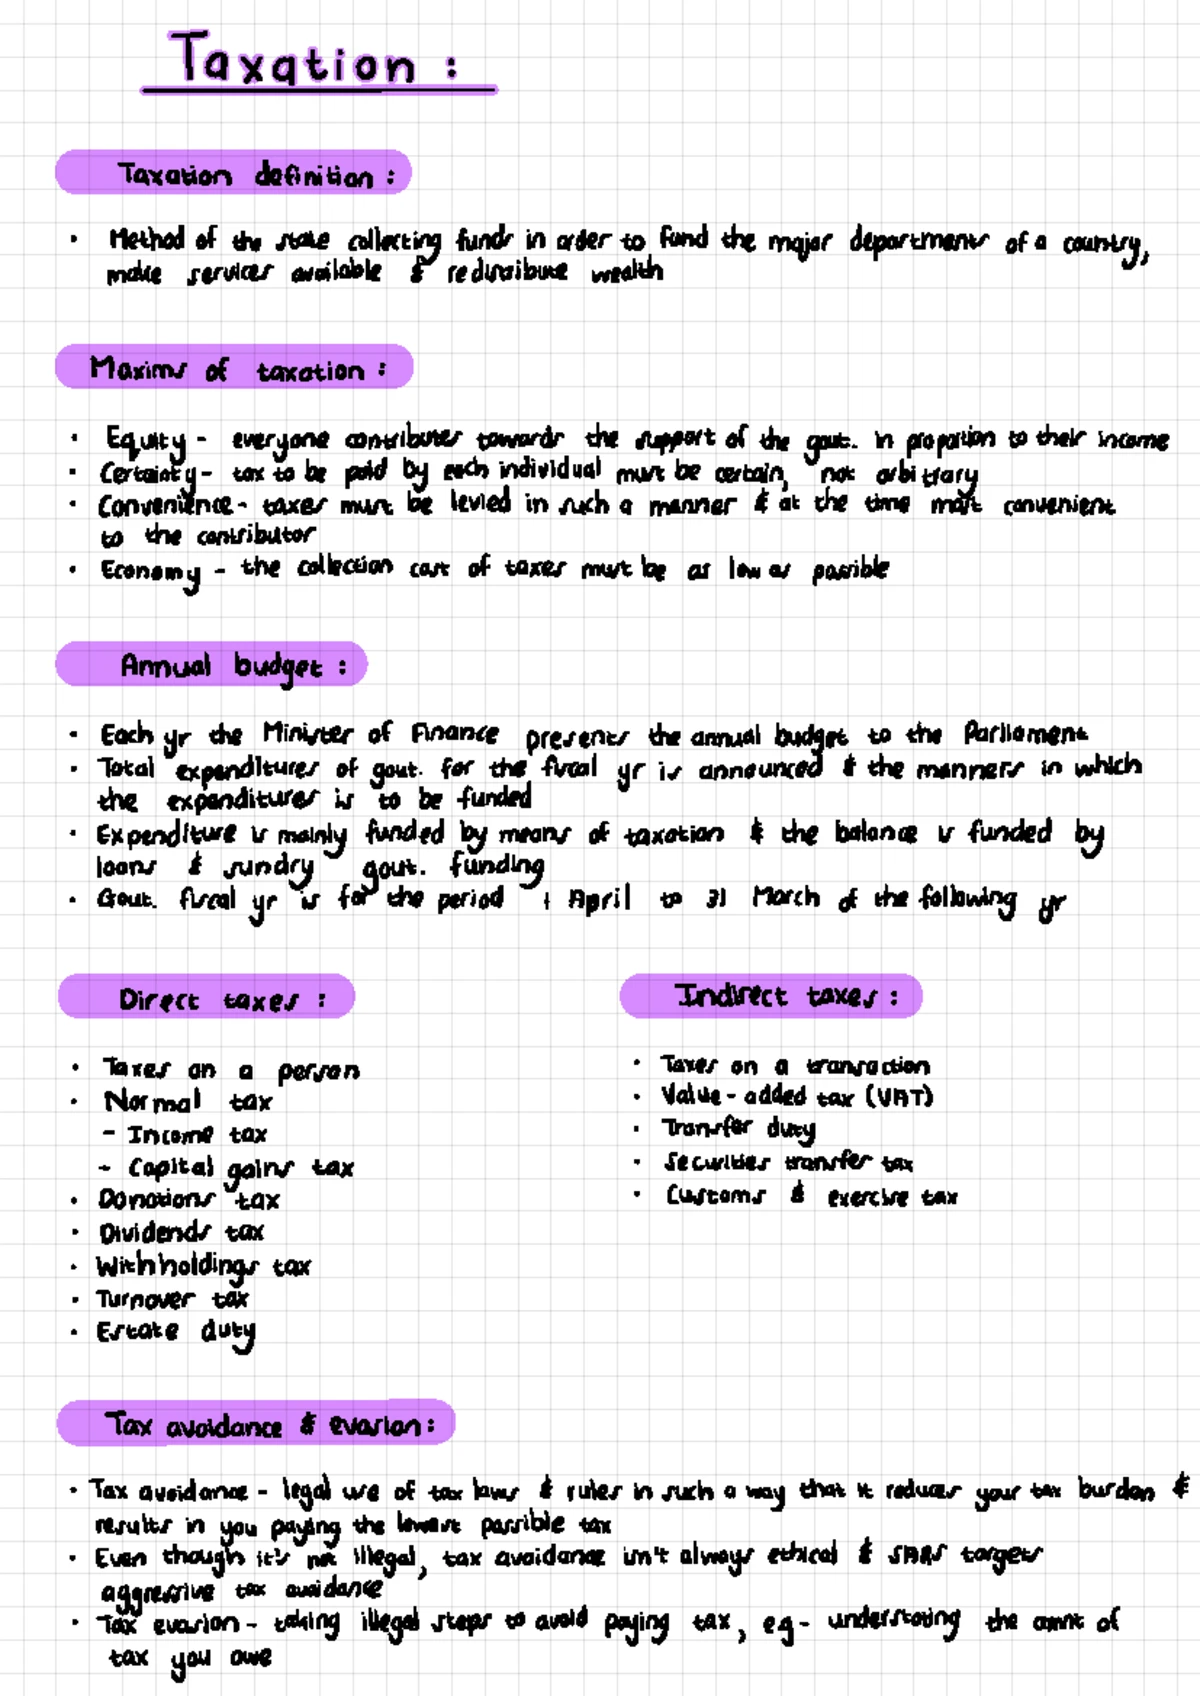 Taxation :
Taxation definition :
• Method of the state collecting funds in order to fund the major departments of a country,
make services available & redistribute wealth
Maxims of taxation :
• Equity - everyone contributes towards the support of the govt. in propotion to their income
• Certainty - tax to be paid by each individual must be certain, not arbitrary
• Convenience - taxes must be levied in such a manner & at the time most convenient
to the contributor
• Economy - the collection cost of taxes must be as low as possible
Annual budget :
• Each yr the Minister of Finance presents the annual budget to the Parliament
• Total expenditures of govt. for the fiscal yr is announced & the manners in which
the expenditures is to be funded
• Expenditure is mainly funded by means of taxation & the balance is funded by
loans & sundry govt. funding
• Govt. fiscal yr is for the period 1 April to 31 March of the following yr
Direct taxes :
• Taxes on a person
• Normal tax
- Income tax
- Capital gains tax
• Donations tax
• Dividends tax
• Withholdings tax
• Turnover tax
• Estate duty
Indirect taxes :
• Taxes on a transaction
• Value-added tax (VAT)
• Transfer duty
• Securities transfer tax
• Customs & exercise tax
Tax avoidance & evasion :
• Tax avoidance - legal use of tax laws & rules in such a way that it reduces your tax burden &
results in you paying the lowest possible tax
• Even though it's not illegal, tax avoidance isn't always ethical & SARS targets
aggressive tax avoidance
• Tax evasion - taking illegal steps to avoid paying tax, eg - understating the amnt of
tax you owe